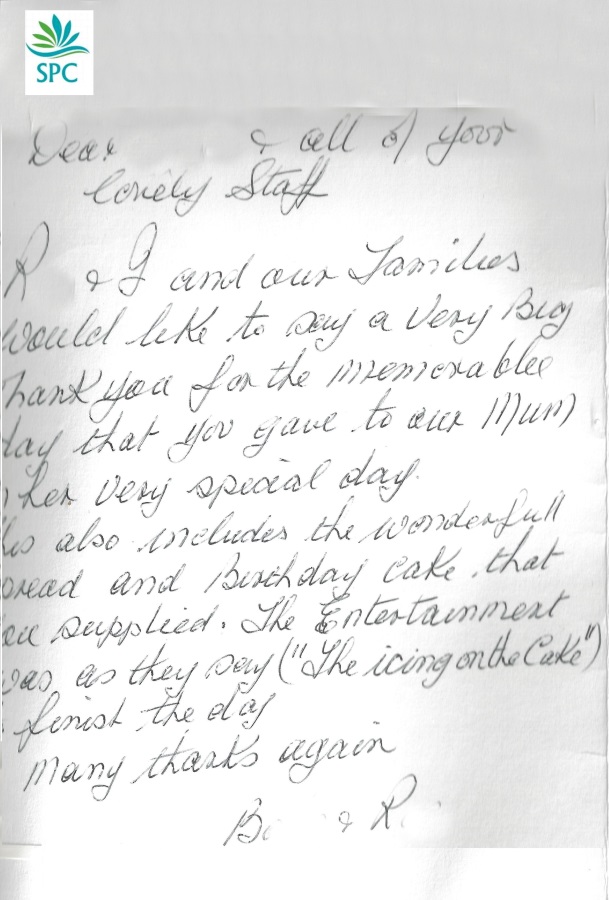 SPC
Dear & all of your
lovely Staff
R & J and our Families
would like to say a Very Big
hank you for the memorable
day that you gave to our Mum
her very special day.
his also includes the wonderfull
pread and Birthday cake that
ou supplied. The Entertainment
was as they say ("The icing on the Cake")
finish the day
Many thanks again
B & R